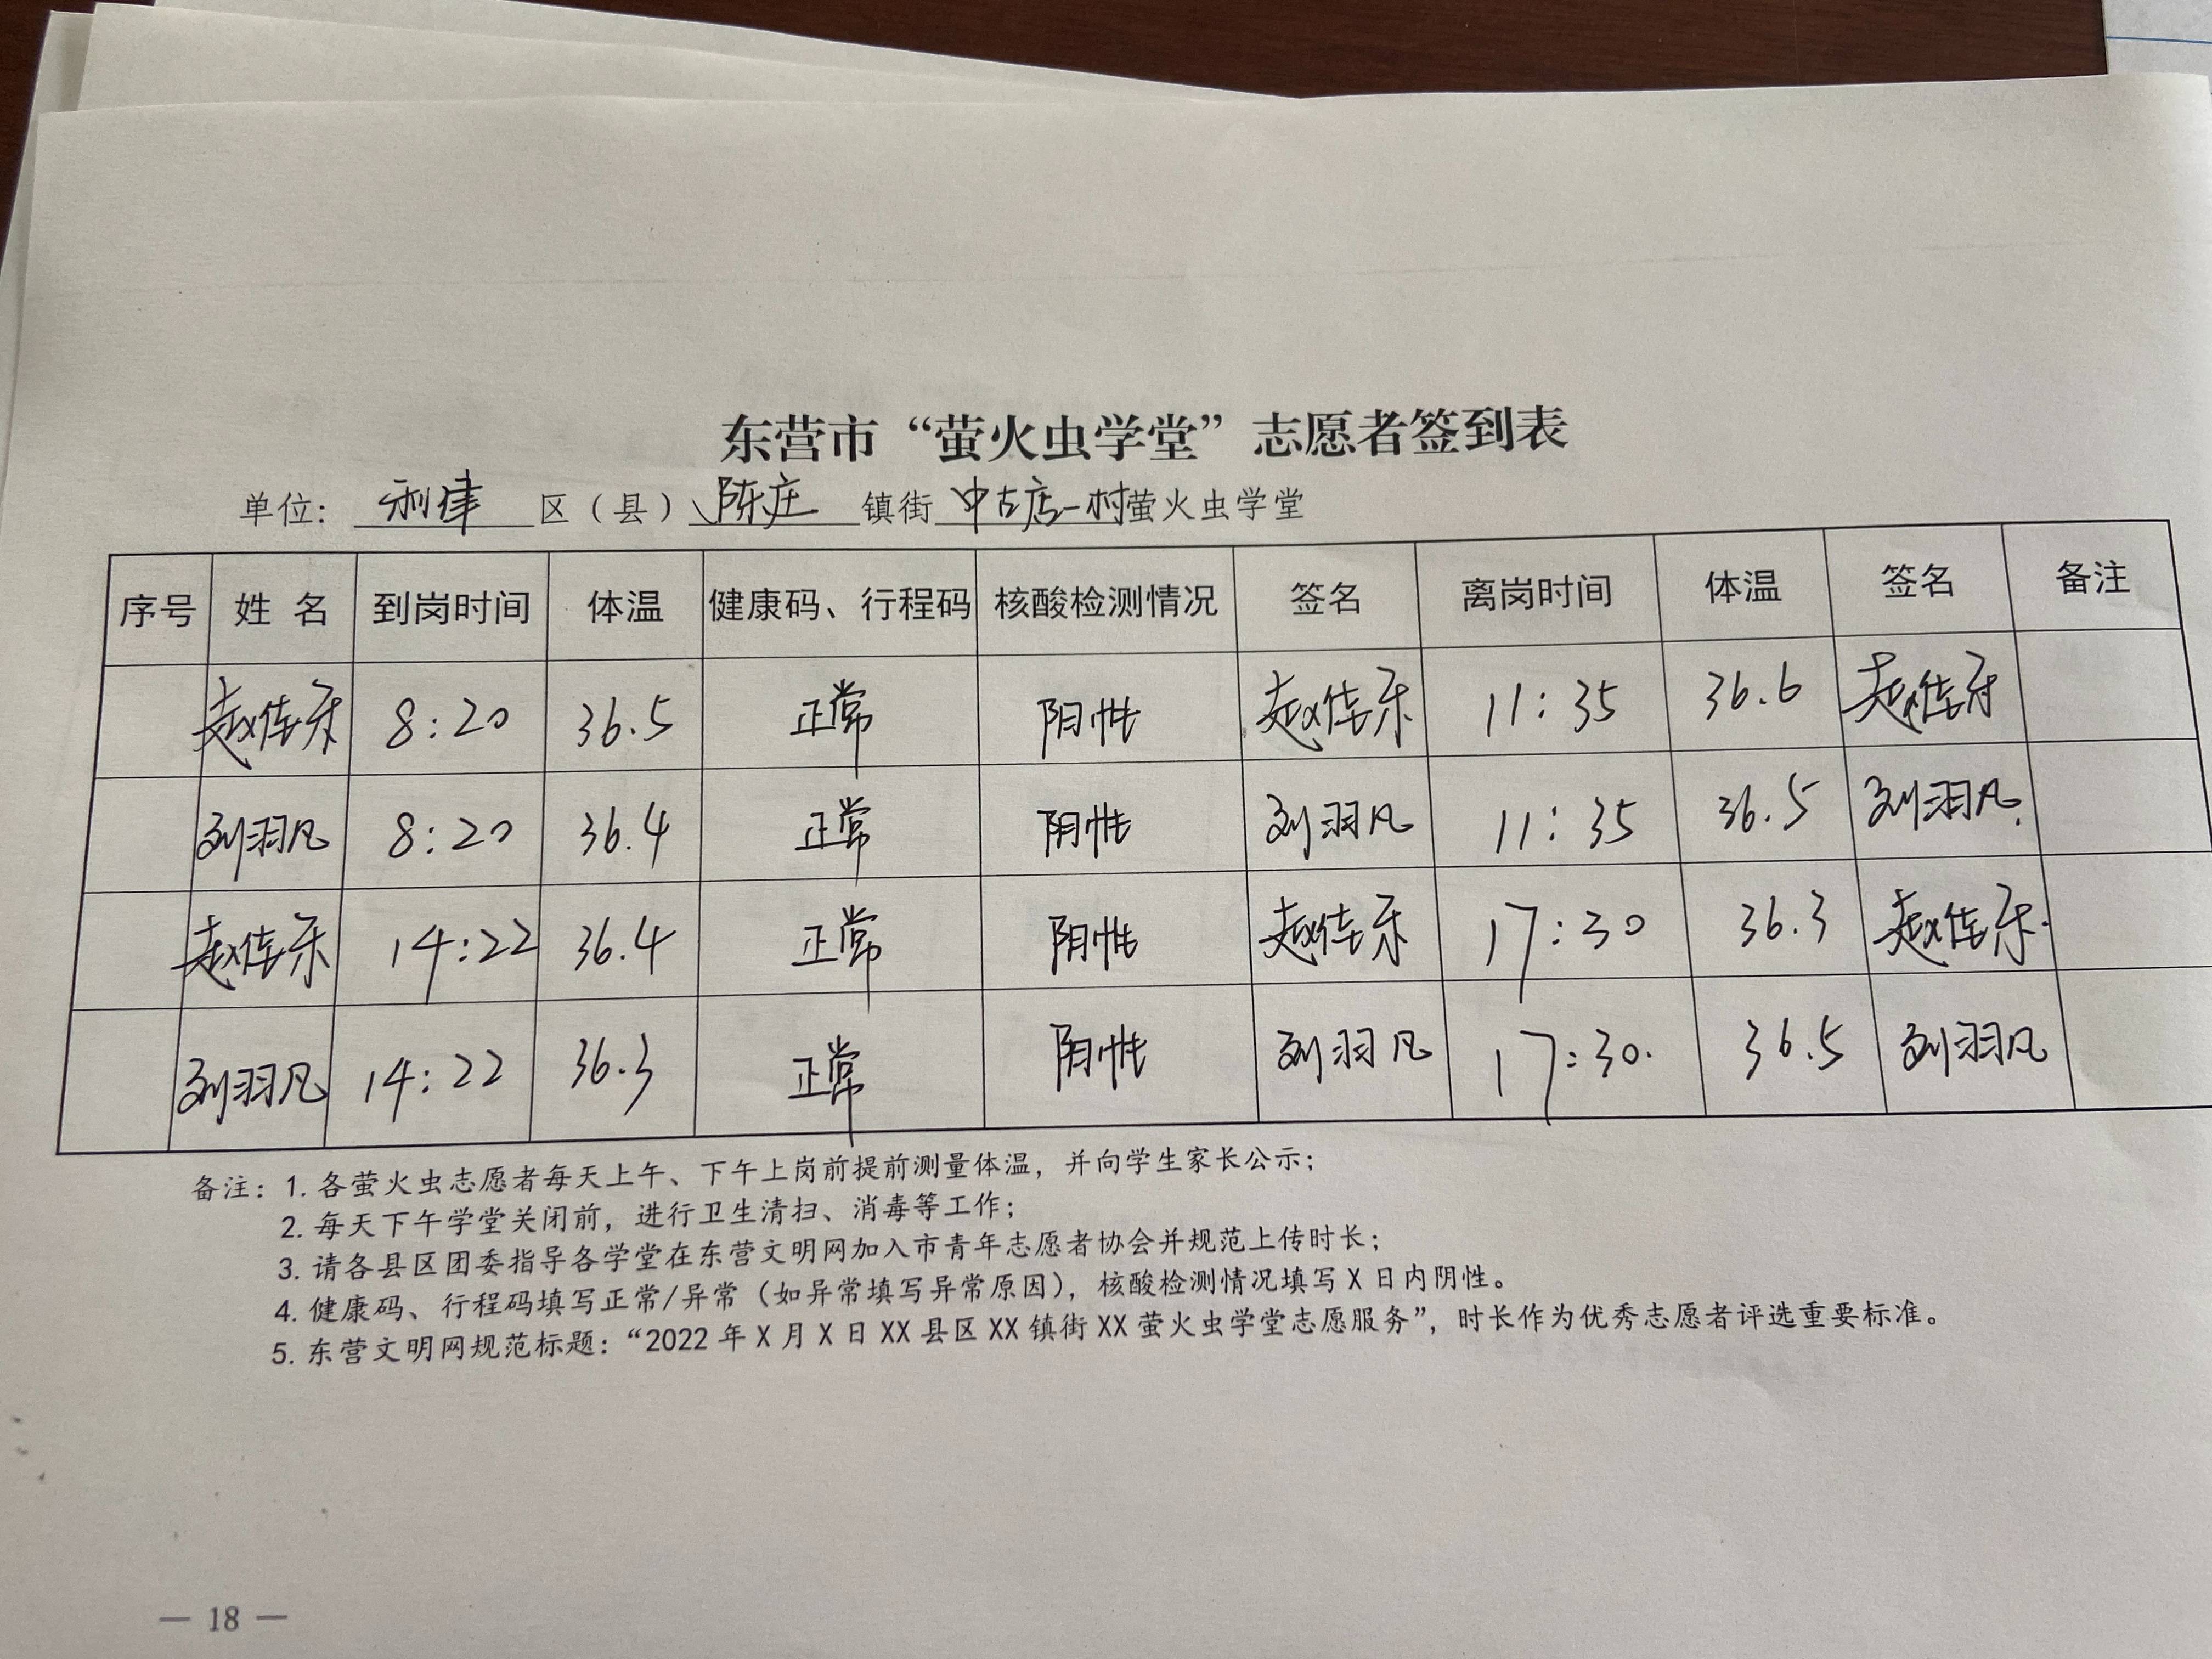 东营市“萤火虫学堂”志愿者签到表
单位：利津区（县）陈庄镇街中古店一村萤火虫学堂
序号 姓名 到岗时间 体温 健康码、行程码 核酸检测情况 签名 离岗时间 体温 签名 备注
赵佳乐 8:20 36.5 正常 阴性 赵佳乐 11:35 36.6 赵佳乐
刘羽凡 8:20 36.4 正常 阴性 刘羽凡 11:35 36.5 刘羽凡.
赵佳乐 14:22 36.4 正常 阴性 赵佳乐 17:30 36.3 赵佳乐.
刘羽凡 14:22 36.3 正常 阴性 刘羽凡 17:30. 36.5 刘羽凡
备注：1. 各萤火虫志愿者每天上午、下午上岗前提前测量体温，并向学生家长公示；
2. 每天下午学堂关闭前，进行卫生清扫、消毒等工作；
3. 请各县区团委指导各学堂在东营文明网加入市青年志愿者协会并规范上传时长；
4. 健康码、行程码填写正常/异常（如异常填写异常原因），核酸检测情况填写 X 日内阴性。
5. 东营文明网规范标题：“2022 年 X 月 X 日 XX 县区 XX 镇街 XX 萤火虫学堂志愿服务”，时长作为优秀志愿者评选重要标准。
— 18 —